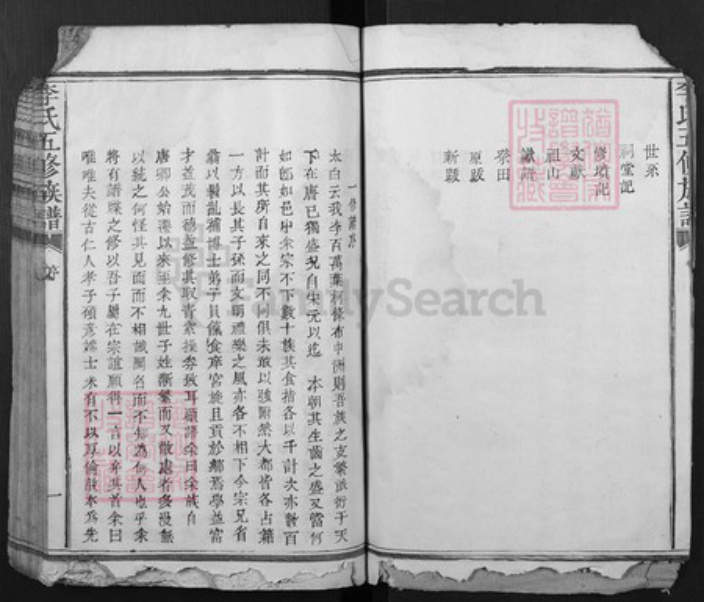 世系
祠堂記
修墳記
文獻
祖山
祭田
原跋
新跋
李氏五修族譜
一修譜序
太白云我李百萬葉柯條布中洲則吾族之支繁派衍于天
下在唐已獨盛況自宋元以迄 本朝其生齒之盛又當何
如即如邑中余宗不下數十族其食指各以千計次亦數百
計而其所自來之同不同俱未敢以強附然大都皆各占籍
一方以長其子孫而文明禮樂之風亦各不相下今宗兄省
以髫齓補博士弟子員餼食庠宮旋且貢於鄉焉學益富
才益茂而德益修其取青紫操券致耳顧語余曰余族自
唐卿公始遷以來至余九世子姓漸繁而又散處者多漫無
以統之何怪其見面而不相識聞名而不知為何人也乎余
將有譜牒之修以吾子屬在宗誼願得一言以弁其首余曰
唯唯夫從古仁人孝子碩彥端士未有不以厚倫敦本為先
一
FamilySearch